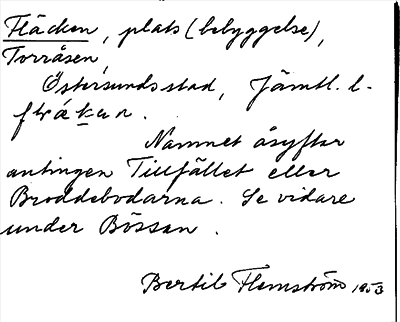 Fläcken, plats (bebyggelse),
Torråsen,
Östersunds stad, Jämtl. l.
Namnet åsyftar
antingen Tillfället eller
Broddebodarna. Se vidare
under Bössan.
Bertil Flemström 1953